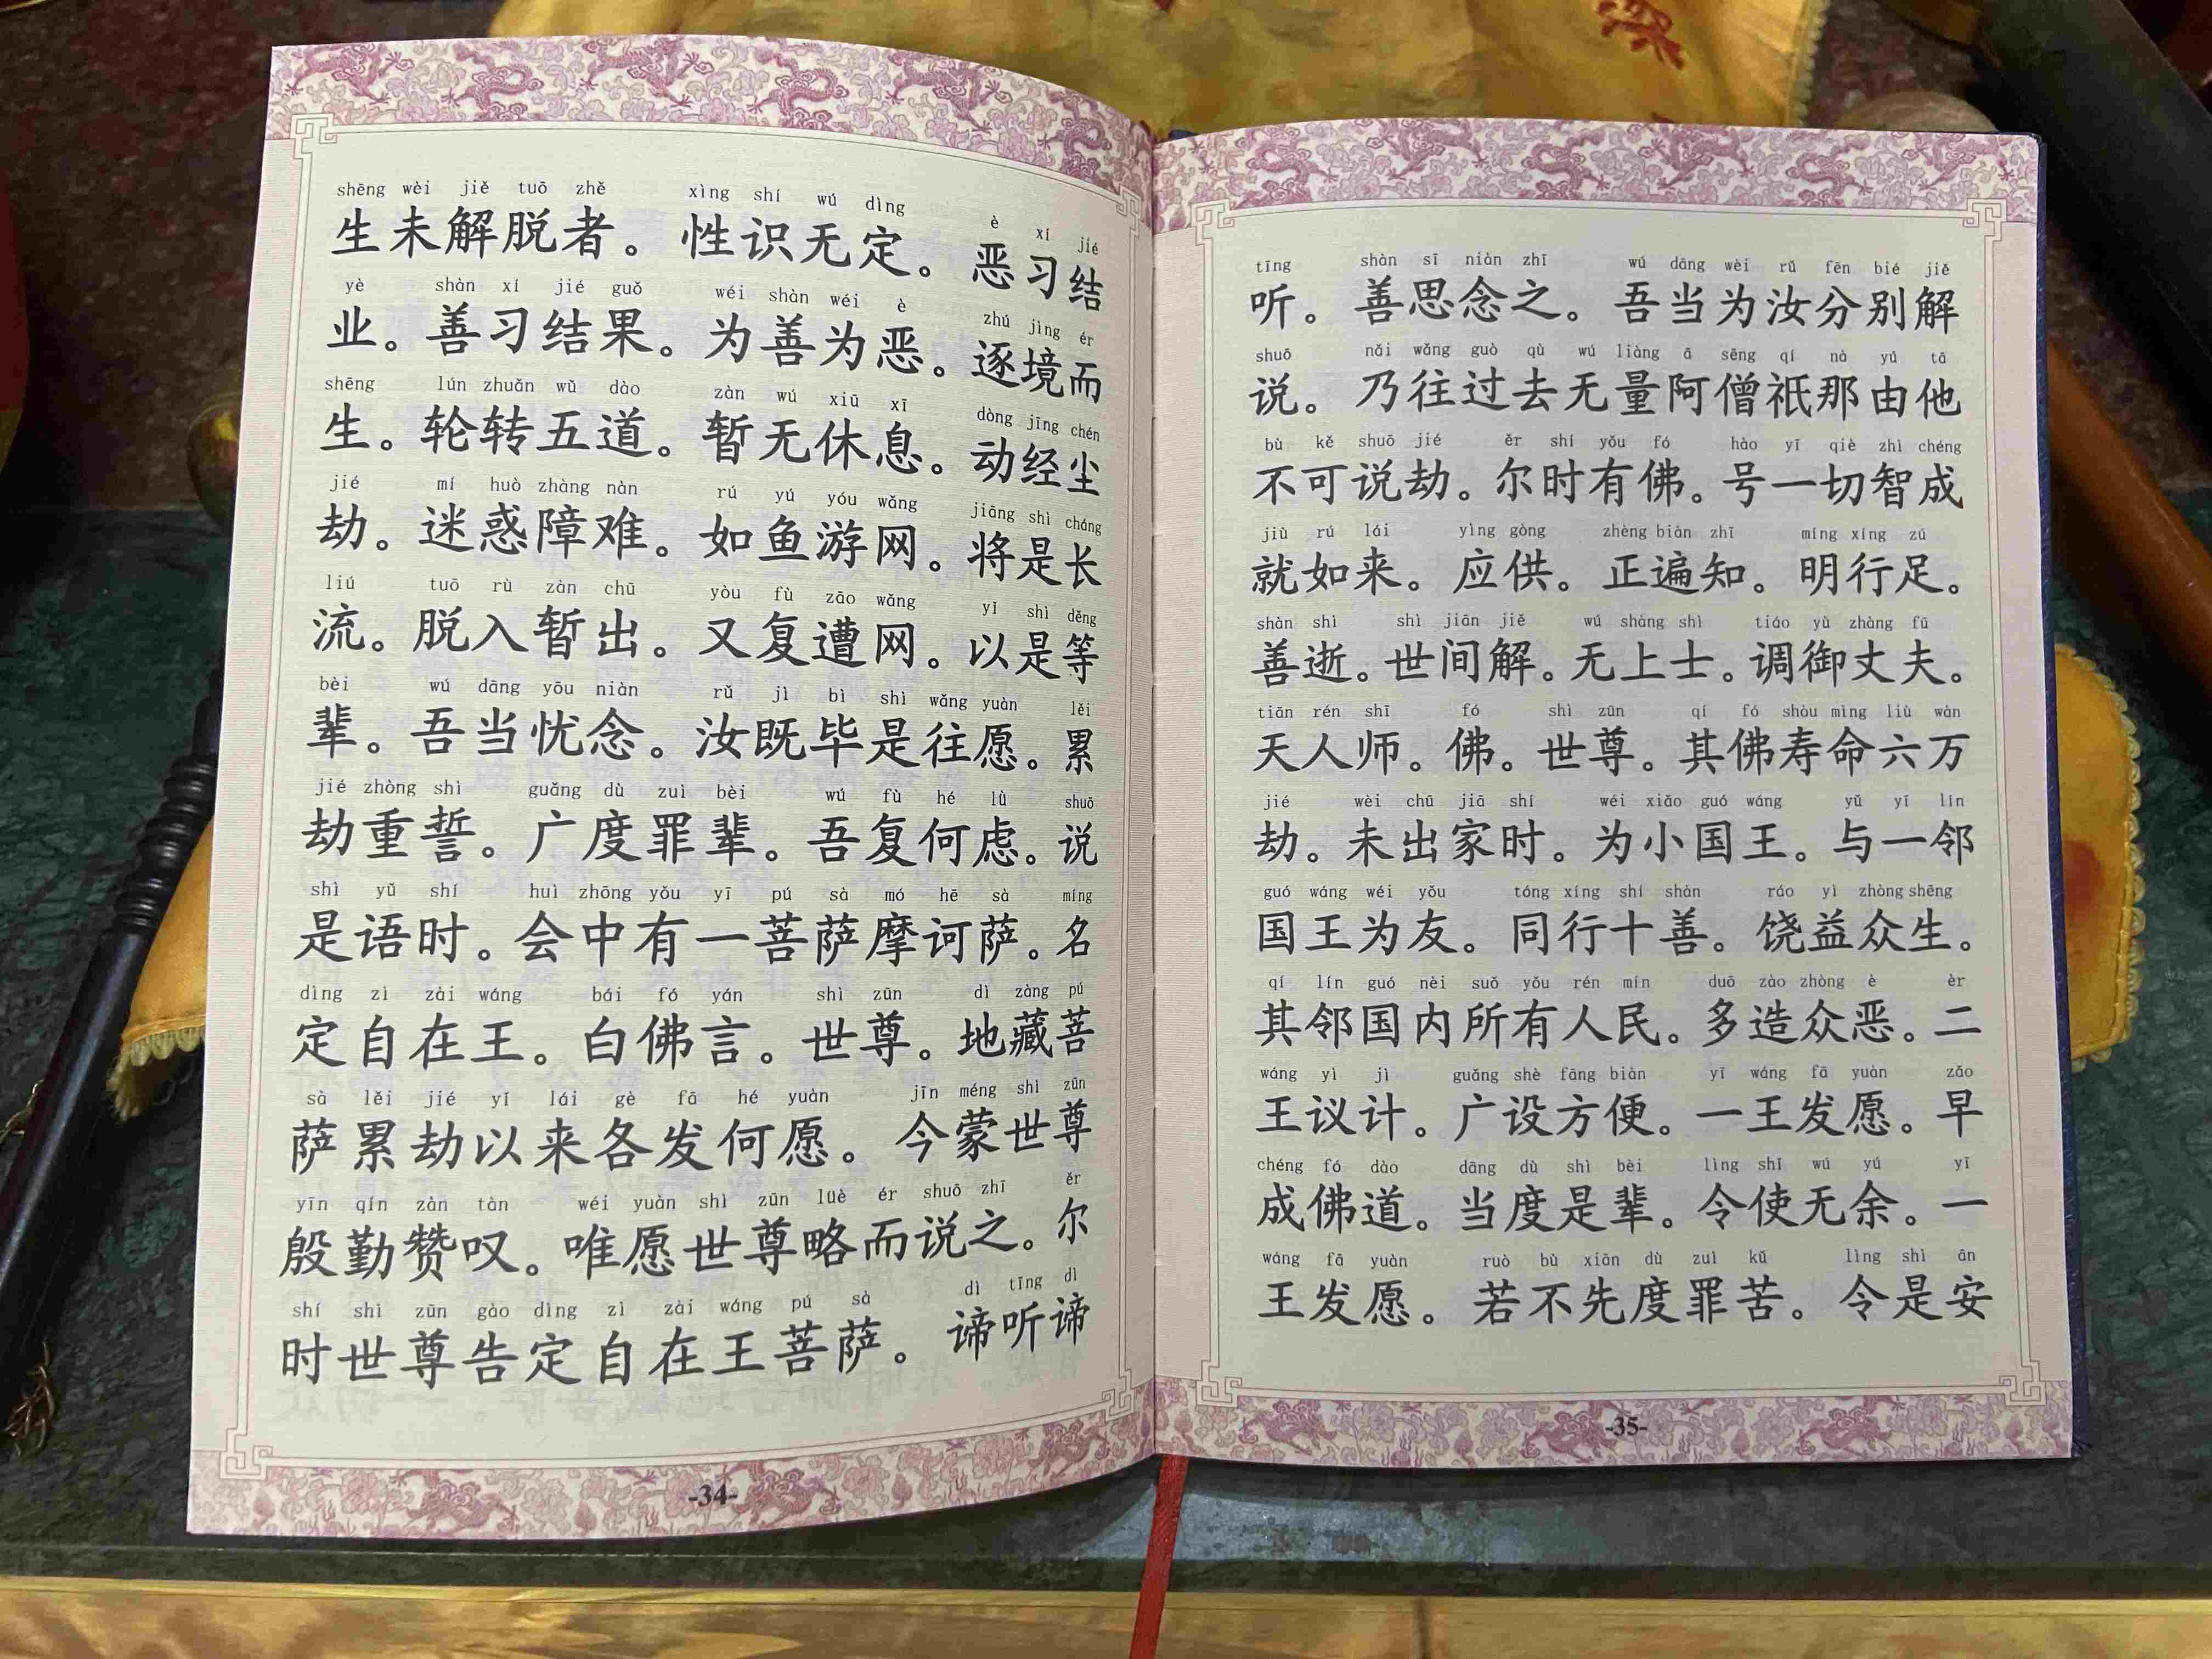 shēng wèi jiě tuō zhě xìng shí wú dìng è xí jié
生未解脱者。性识无定。恶习结
yè shàn xí jié guǒ wéi shàn wéi è zhú jìng ér
业。善习结果。为善为恶。逐境而
shēng lún zhuǎn wǔ dào zàn wú xiū xī dòng jīng chén
生。轮转五道。暂无休息。动经尘
jié mí huò zhàng nàn rú yú yóu wǎng jiāng shì cháng
劫。迷惑障难。如鱼游网。将是长
liú tuō rù zàn chū yòu fù zāo wǎng yǐ shì děng
流。脱入暂出。又复遭网。以是等
bèi wú dāng yōu niàn rǔ jì bì shì wǎng yuàn lěi
辈。吾当忧念。汝既毕是往愿。累
jié zhòng shì guǎng dù zuì bèi wú fù hé lǜ shuō
劫重誓。广度罪辈。吾复何虑。说
shì yǔ shí huì zhōng yǒu yī pú sà mó hē sà míng
是语时。会中有一菩萨摩诃萨。名
dìng zì zài wáng bái fó yán shì zūn dì zàng pú
定自在王。白佛言。世尊。地藏菩
sà lěi jié yǐ lái gè fā hé yuàn jīn méng shì zūn
萨累劫以来各发何愿。今蒙世尊
yīn qín zàn tàn wéi yuàn shì zūn lüè ér shuō zhī ěr
殷勤赞叹。唯愿世尊略而说之。尔
shí shì zūn gào dìng zì zài wáng pú sà dì tīng dì
时世尊告定自在王菩萨。谛听谛
-34-
tīng shàn sī niàn zhī wú dāng wèi rǔ fēn bié jiě
听。善思念之。吾当为汝分别解
shuō nǎi wǎng guò qù wú liàng ā sēng qí nà yú tā
说。乃往过去无量阿僧祇那由他
bù kě shuō jié ěr shí yǒu fó hào yī qiè zhì chéng
不可说劫。尔时有佛。号一切智成
jiù rú lái yìng gòng zhèng biàn zhī míng xíng zú
就如来。应供。正遍知。明行足。
shàn shì shì jiān jiě wú shàng shì tiáo yù zhàng fū
善逝。世间解。无上士。调御丈夫。
tiān rén shī fó shì zūn qí fó shòu mìng liù wàn
天人师。佛。世尊。其佛寿命六万
jié wèi chū jiā shí wéi xiǎo guó wáng yǔ yī lín
劫。未出家时。为小国王。与一邻
guó wáng wéi yǒu tóng xíng shí shàn ráo yì zhòng shēng
国王为友。同行十善。饶益众生。
qí lín guó nèi suǒ yǒu rén mín duō zào zhòng è èr
其邻国内所有人民。多造众恶。二
wáng yì jì guǎng shè fāng biàn yī wáng fā yuàn zǎo
王议计。广设方便。一王发愿。早
chéng fó dào dāng dù shì bèi lìng shǐ wú yú yī
成佛道。当度是辈。令使无余。一
wáng fā yuàn ruò bù xiān dù zuì kǔ lìng shì ān
王发愿。若不先度罪苦。令是安
-35-